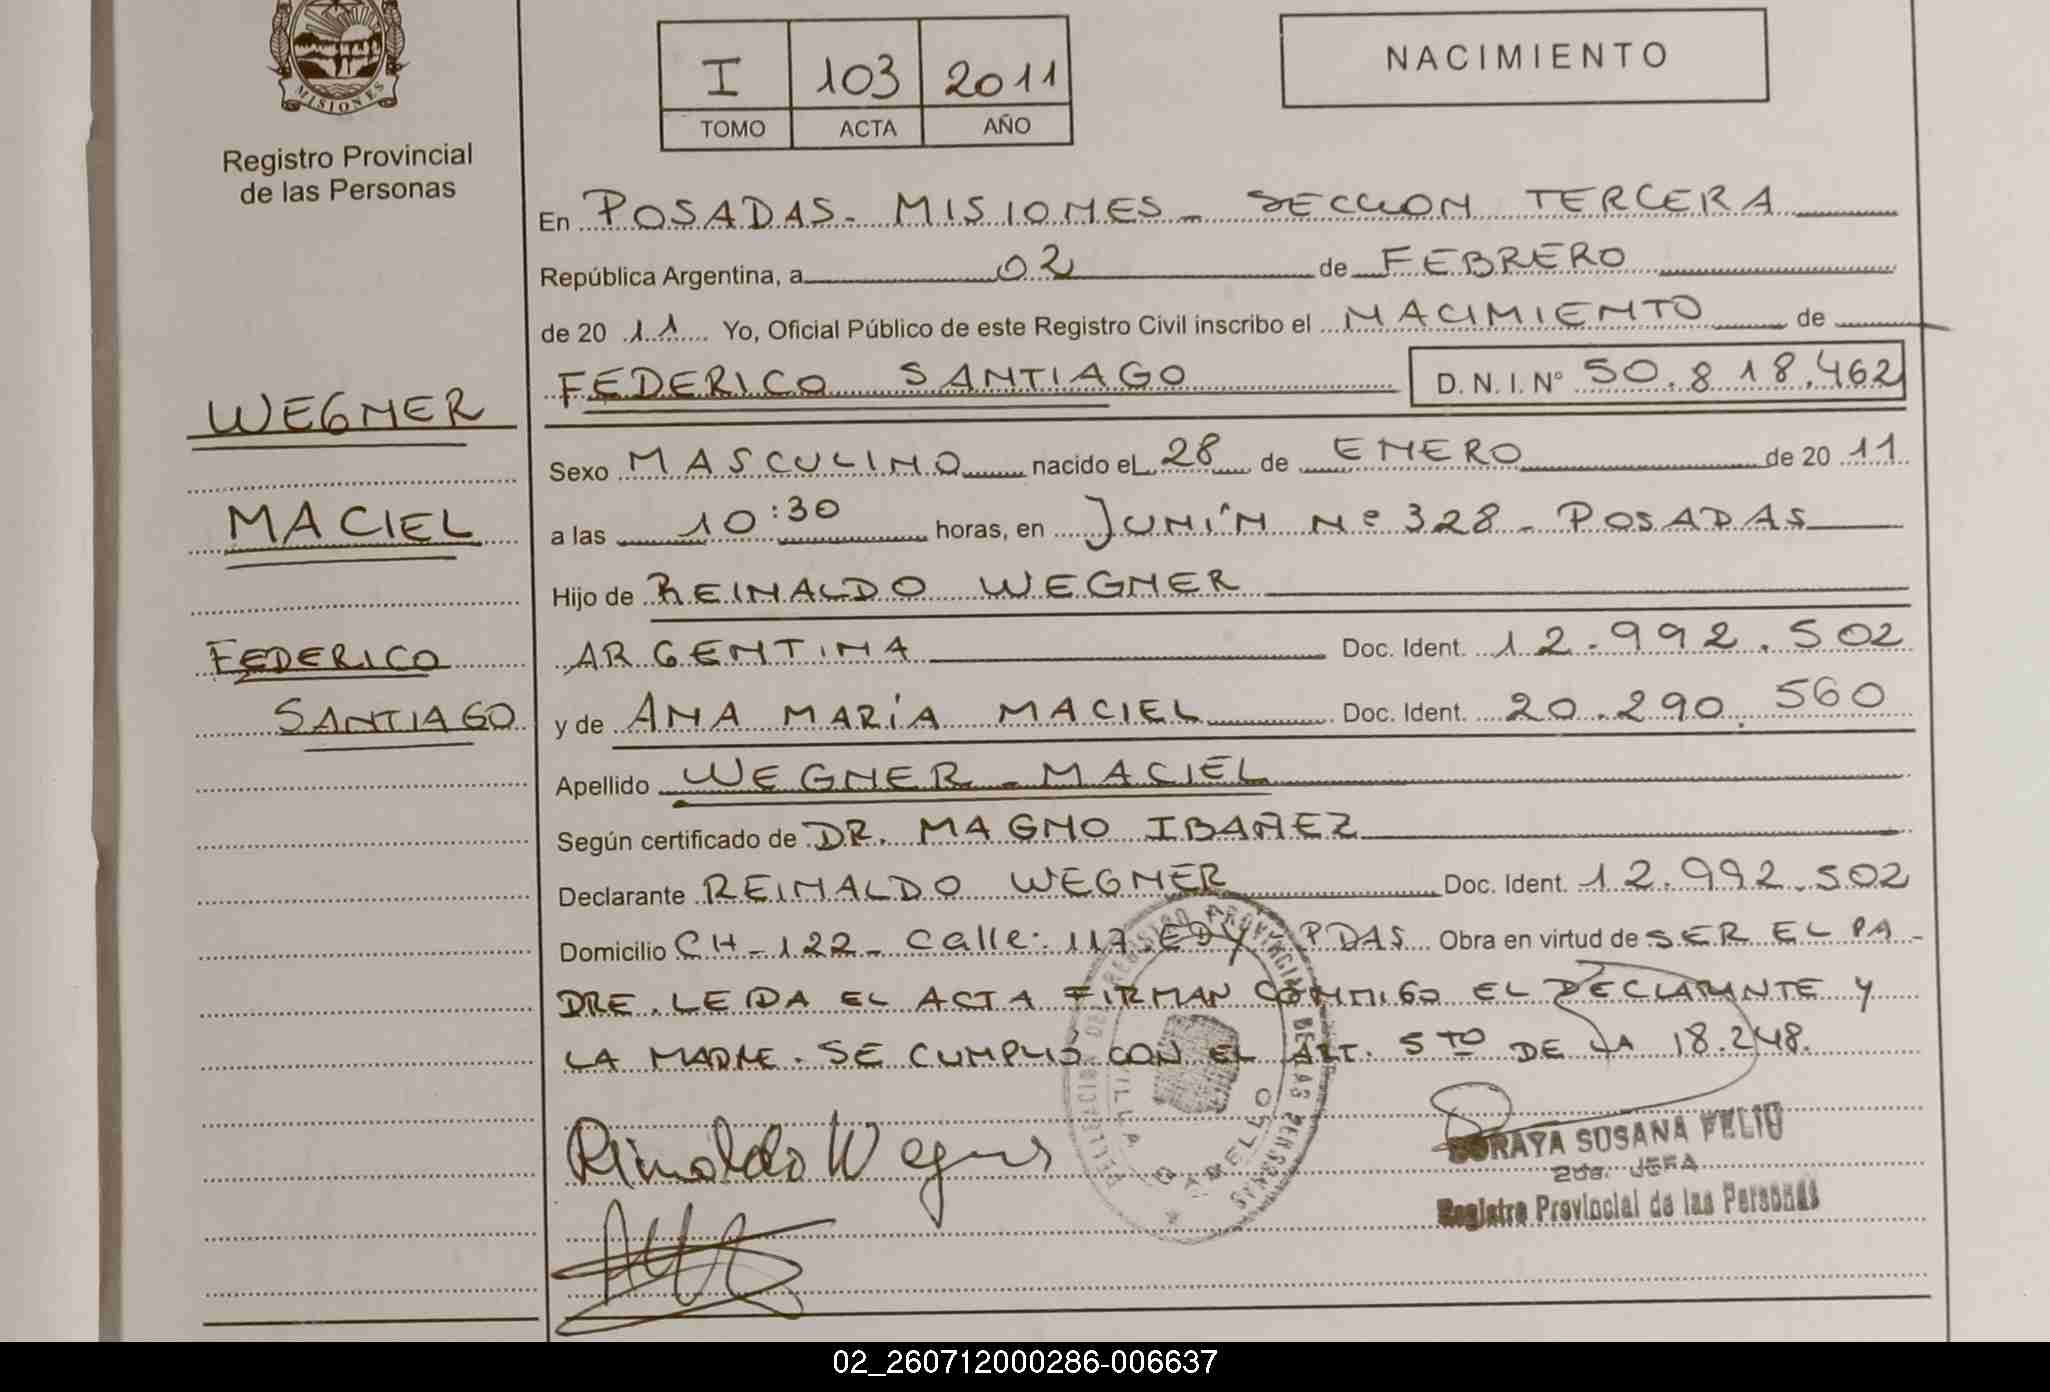 MISIONES
Registro Provincial
de las Personas
I 103 2011
TOMO ACTA AÑO
NACIMIENTO
En POSADAS - MISIONES - SECCION TERCERA
República Argentina, a 02 de FEBRERO
de 20 11 Yo, Oficial Público de este Registro Civil inscribo el NACIMIENTO de
FEDERICO SANTIAGO D.N.I.Nº 50.818.462
WEGNER
Sexo MASCULINO nacido el 28 de ENERO de 20 11
MACIEL
a las 10:30 horas, en JUNÍN Nº 328 - POSADAS
Hijo de REINALDO WEGNER
FEDERICO
ARGENTINA Doc. Ident. 12.992.502
SANTIAGO
y de ANA MARÍA MACIEL Doc. Ident. 20.290.560
Apellido WEGNER - MACIEL
Según certificado de DR. MAGNO IBAÑEZ
Declarante REINALDO WEGNER Doc. Ident. 12.992.502
Domicilio CH-122- Calle: 117. EDY - PDAS Obra en virtud de SER EL PA-
DRE. LEIDA EL ACTA FIRMAN CONMIGO EL DECLARANTE Y
LA MADRE. SE CUMPLIÓ CON EL ART. 5TO DE LA 18.248.
Rinaldo Wegner
SORAYA SUSANA FELIU
2da. JEFA
Registro Provincial de las Personas
REGISTRO PROVINCIAL DE LAS PERSONAS
VILLA CABELLO
02_260712000286-006637